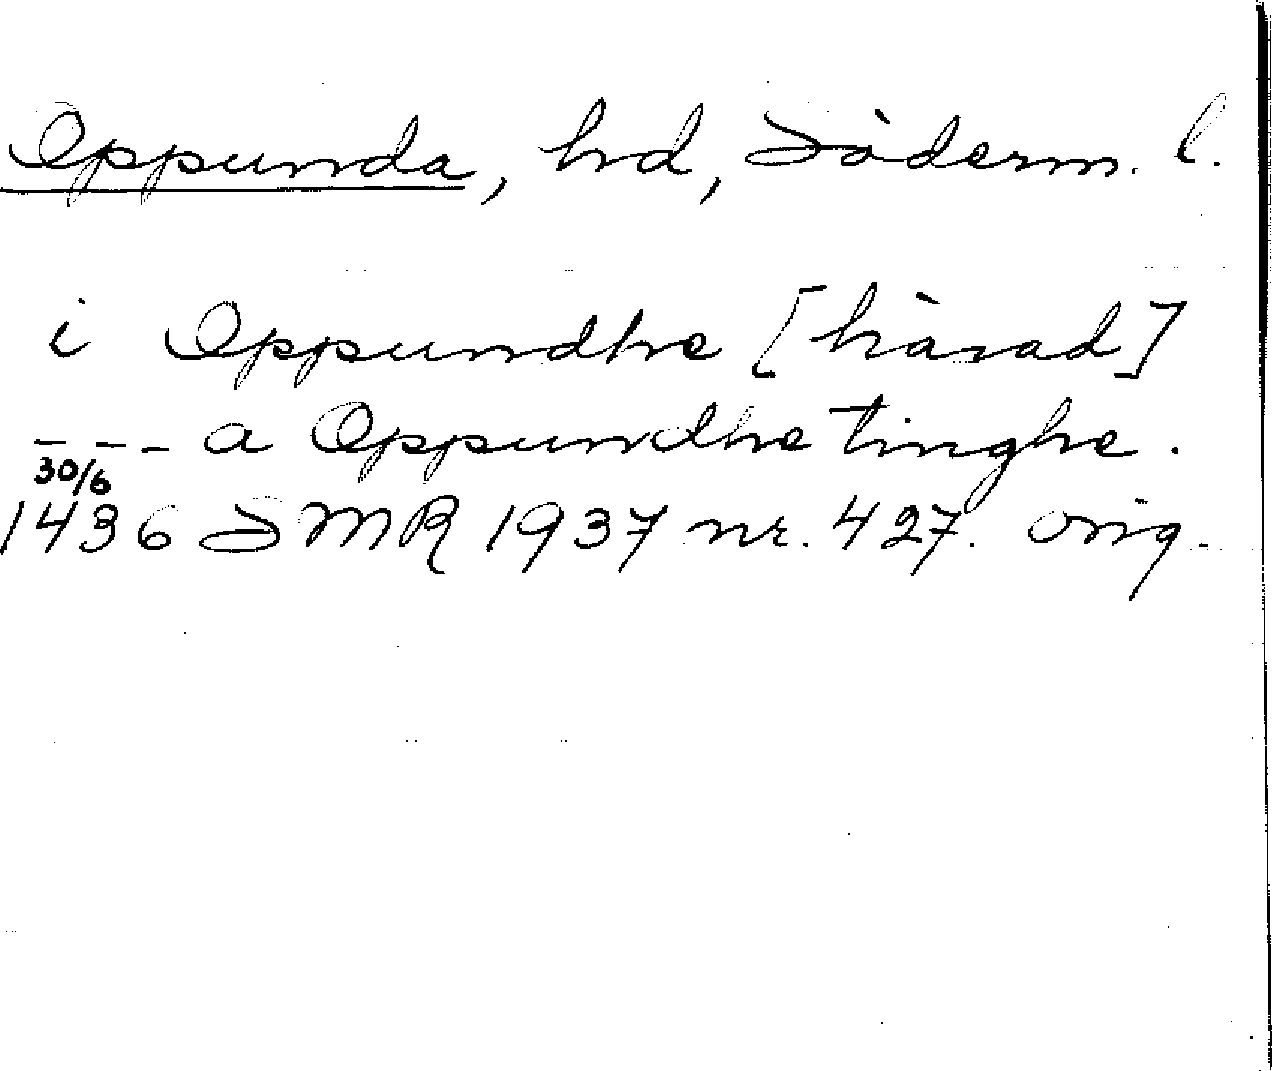 Oppunda, hd, Söderm. l.
i Oppundhe [härad]
- - - a Oppundhe tinghe.
30/6
1436 SMR 1937 nr. 427. orig.